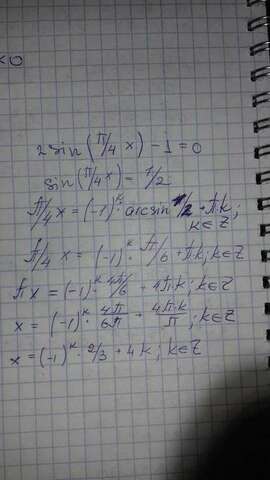 <0
2 sin (π/4 x) - 1 = 0
sin (π/4 x) = 1/2
π/4 x = (-1)^k · arcsin 1/2 + πk ;
k ∈ Z
π/4 x = (-1)^k · π/6 + πk ; k ∈ Z
πx = (-1)^k · 4π/6 + 4πk ; k ∈ Z
x = (-1)^k · 4π/6π + 4πk/π ; k ∈ Z
x = (-1)^k · 2/3 + 4k ; k ∈ Z